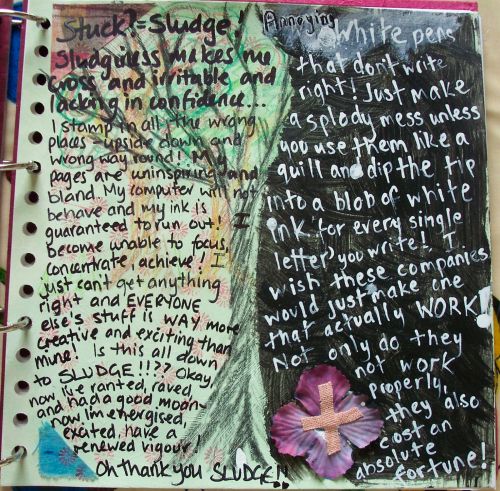 Stuck?=Sludge!
Sludginess makes me
cross and irritable and
lacking in confidence...
I stamp in all the wrong
places - upside down and
wrong way round! My
pages are uninspiring and
bland. My computer will not
behave and my ink is
guaranteed to run out! I
become unable to focus,
concentrate, achieve! I
just can't get anything
right and EVERYONE
else's stuff is WAY more
creative and exciting than
mine! Is this all down
to SLUDGE!!?? Okay,
now i've ranted, raved,
and had a good moan-
now im energised,
excited, have a
renewed vigour!
Oh thank you SLUDGE!!
Annoying White pens
that don't write
right! Just make
a splody mess unless
you use them like a
quill and dip the tip
into a blob of white
ink for every single
letter you write! I
wish these companies
would just make one
that actually WORK!
Not only do they
not work
properly,
they also
cost an
absolute
fortune!